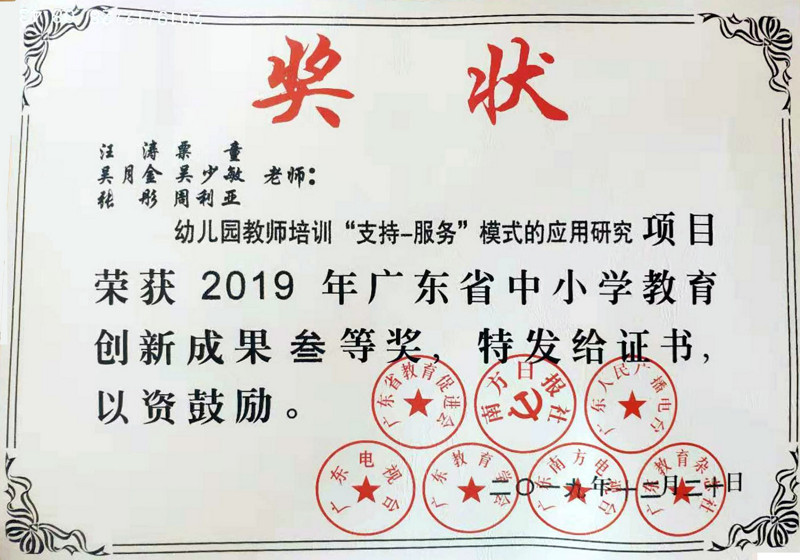 奖状
汪涛 粟童
吴月金 吴少敏 老师:
张彤 周利亚
幼儿园教师培训“支持-服务”模式的应用研究 项目
荣获 2019 年广东省中小学教育
创新成果叁等奖,特发给证书,
以资鼓励。
广东省教育促进会
南方日报社
广东人民广播电台
广东电视台
广东教育学会
广东南方电视台
广东教育杂志社
二〇一九年十二月二十日